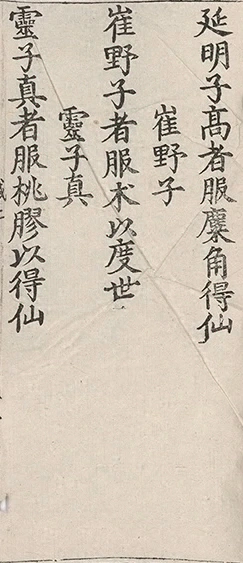 延明子髙者服麋角得仙
崔野子
崔野子者服术以度世
靈子真
靈子真者服桃膠以得仙